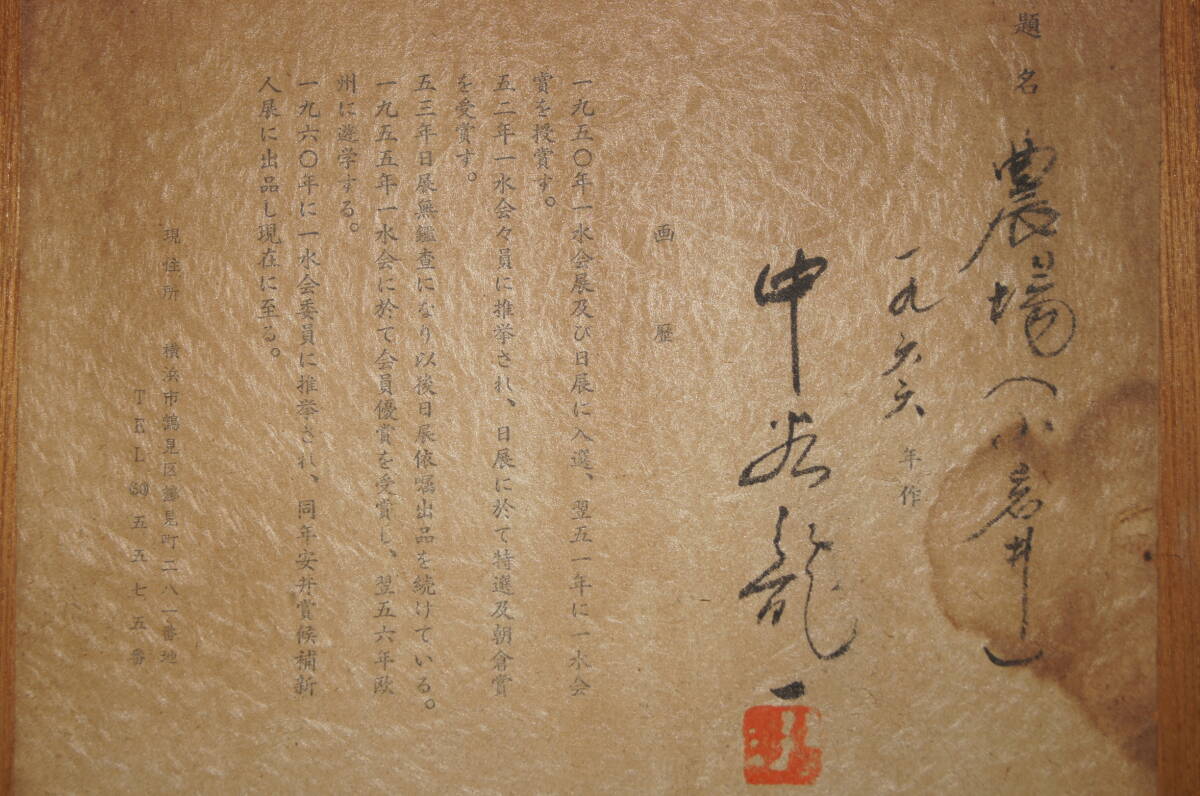 題名 農場（小岩井）
一九六六年作
中谷龍一
画歴
一九五〇年一水会展及び日展に入選、翌五一年に一水会
賞を授賞す。
五二年一水会々員に推挙され、日展に於て特選及朝倉賞
を受賞す。
五三年日展無鑑査になり以後日展依嘱出品を続けている。
一九五五年一水会に於て会員優賞を受賞し、翌五六年欧
州に遊学する。
一九六〇年に一水会委員に推挙され、同年安井賞候補新
人展に出品し現在に至る。
現住所 横浜市鶴見区鶴見町二八一番地
TEL 50 五五七五番